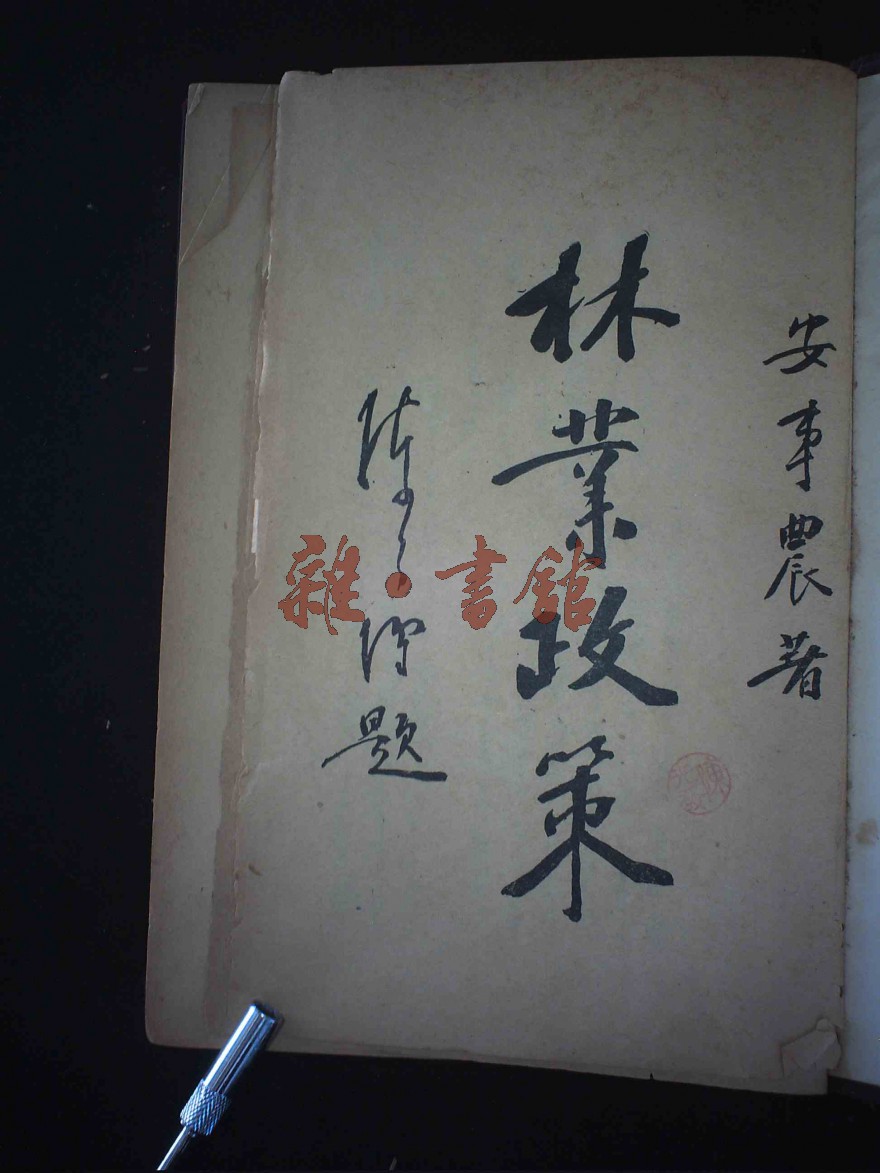 安事農著
林業政策
陳
題
雜·書館